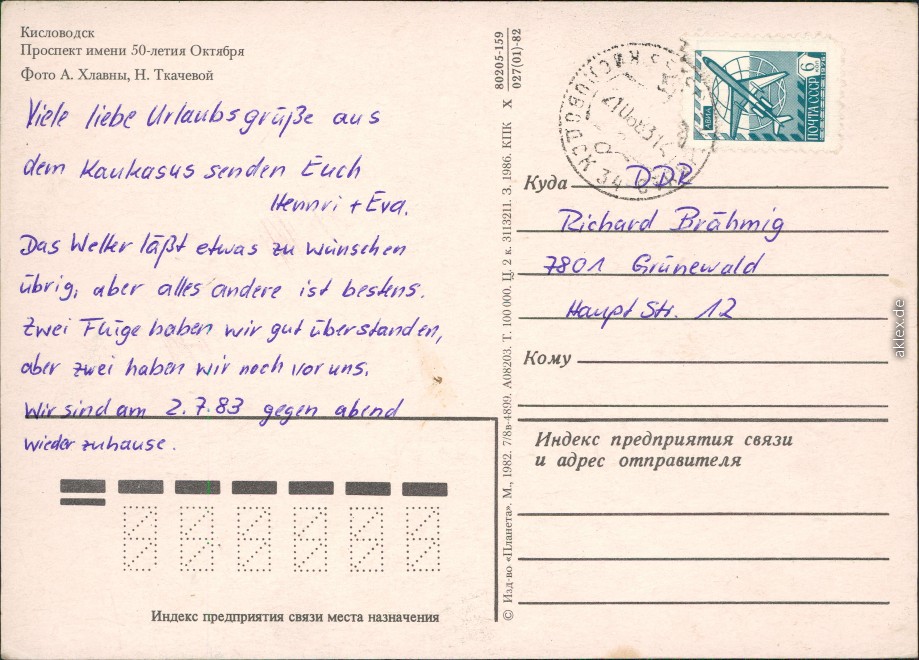 Кисловодск
Проспект имени 50-летия Октября
Фото А. Хлавны, Н. Ткачевой
Viele liebe Urlaubsgrüße aus
dem Kaukasus senden Euch
Hennri + Eva.
Das Wetter läßt etwas zu wünschen
übrig, aber alles andere ist bestens.
Zwei Flüge haben wir gut überstanden,
aber zwei haben wir noch vor uns.
Wir sind am 2.7.83 gegen abend
wieder zuhause.
Индекс предприятия связи места назначения
© Изд-во «Планета». М., 1982. 7/8в-4899. А08203. Т. 100 000. Ц. 2 к. 3113211. З. 1986. КПК X 80205-159
027(01)-82
АВИА
ПОЧТА СССР 6 коп
КИСЛОВОДСК
34
Куда DDR
Richard Brähmig
7801 Grünewald
Hauptstr. 12
Кому
Индекс предприятия связи
и адрес отправителя
aklex.de